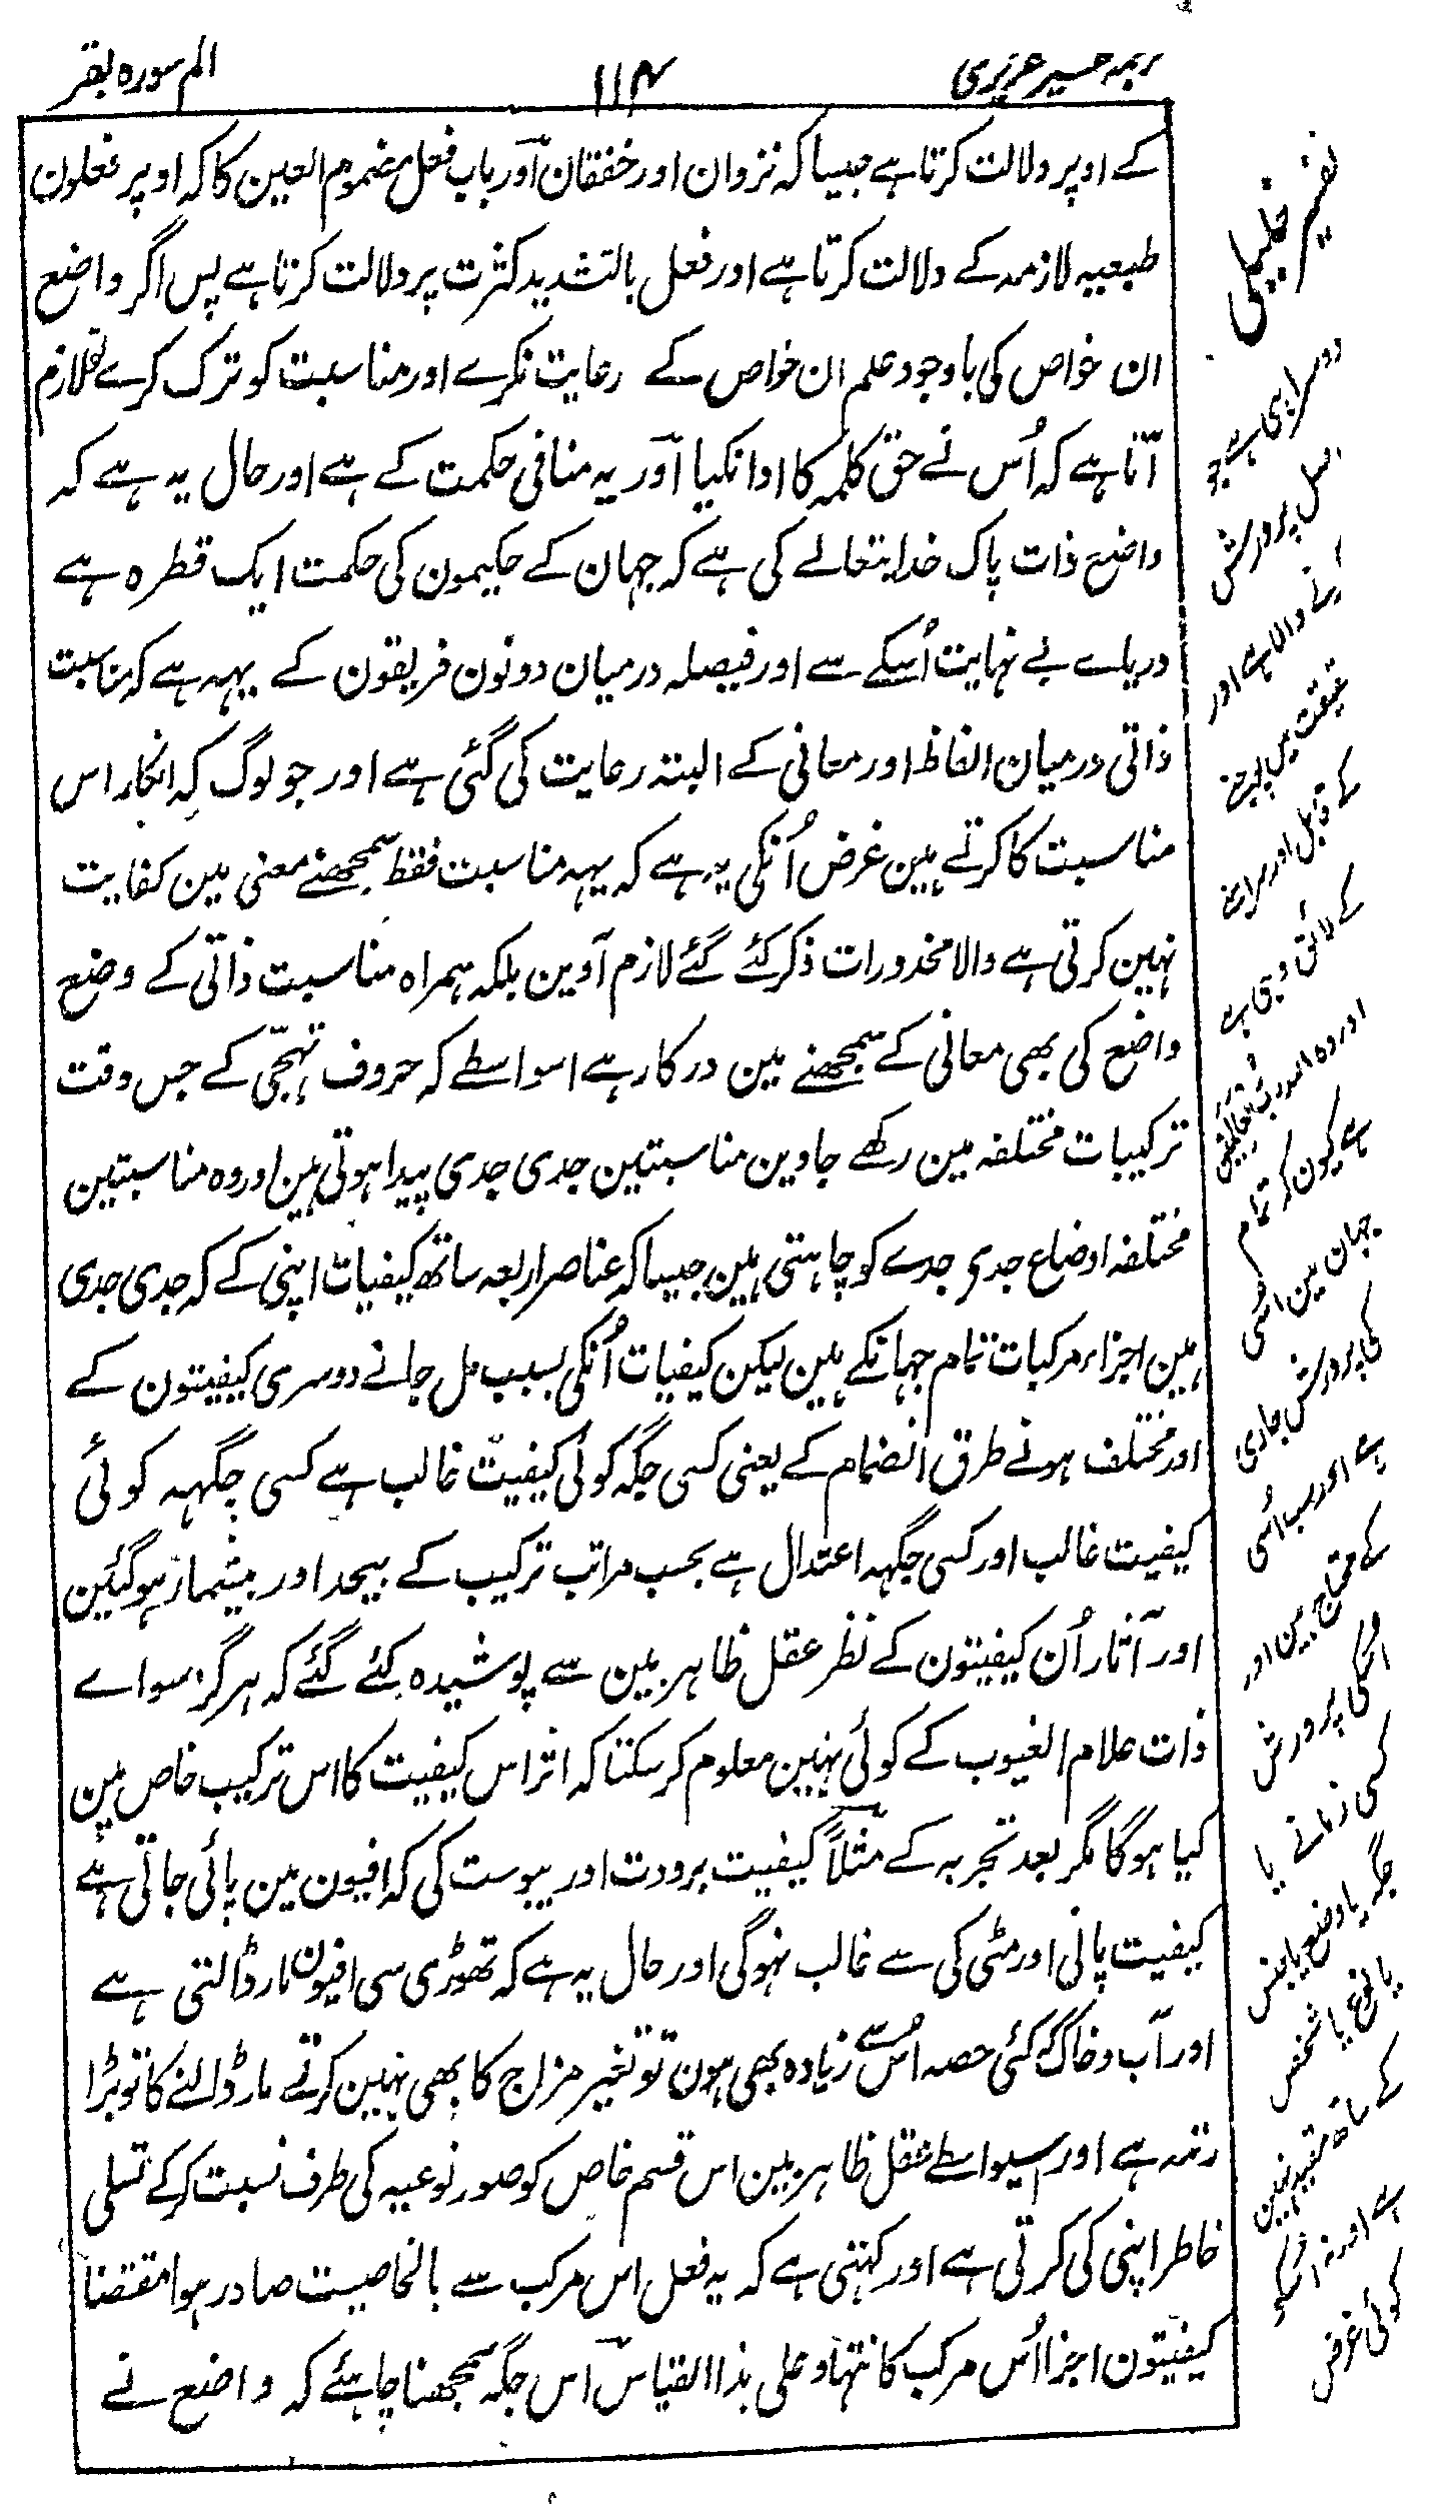 الم سورہ بقر
۱۱۴
عزیزی
کے اوپر دلالت کرتا ہے جیسا کہ نزوان اور خفقان اور باب فعل مضموم العین کا کہ اوپر فعلون
طبعیہ لازمہ کے دلالت کرتا ہے اور فعل بالتشدید کثرت پر دلالت کرتا ہے پس اگر واضع
ان خواص کی باوجود علم ان خواص کے رعایت نکرے اور مناسبت کو ترک کرے تو لازم
آتا ہے کہ اُس نے حق کلمہ کا ادا نکیا اور یہ منافی حکمت کے ہے اور حال یہ ہے کہ
واضع ذات پاک خدایتعالے کی ہے کہ جہان کے حکیمون کی حکمت ایک قطرہ ہے
دریاے بے نہایت اُسکے سے اور فیصلہ درمیان دونون فریقون کے یہہ ہے کہ مناسبت
ذاتی درمیان الفاظ اور معانی کے البتہ رعایت کی گئی ہے اور جو لوگ کہ انکار اس
مناسبت کا کرتے ہین غرض اُنکی یہ ہے کہ یہہ مناسبت فقط سمجھنے معنی مین کفایت
نہین کرتی ہے والا محذورات ذکر کئے گئے لازم آوین بلکہ ہمراہ مناسبت ذاتی کے وضع
واضع کی بھی معانی کے سمجھنے مین درکار ہے اسواسطے کہ حروف تہجّی کے جس وقت
ترکیبات مختلفہ مین رکھے جاوین مناسبتین جدی جدی پیدا ہوتی ہین اور وہ مناسبتین
مختلفہ اوضاع جدی جدے کو چاہتی ہین جیسا کہ عناصر اربعہ ساتھ کیفیات اپنی کے کہ جدی جدی
ہین اجزاء مرکبات تمام جہانکے ہین لیکن کیفیات اُنکی بسبب مل جانے دوسری کیفیتون کے
اور مختلف ہونے طرق انضمام کے یعنی کسی جگہ کوئی کیفیت غالب ہے کسی جگہہ کوئی
کیفیت غالب اور کسی جگہہ اعتدال ہے بحسب مراتب ترکیب کے بیحد اور بیشمار ہوگئین
اور آثار اُن کیفیتون کے نظر عقل ظاہر بین سے پوشیدہ کئے گئے کہ ہرگز سواے
ذات علام الغیوب کے کوئی نہین معلوم کر سکتا کہ اثر اس کیفیت کا اس ترکیب خاص مین
کیا ہوگا مگر بعد تجربہ کے مثلاً کیفیت برودت اور یبوست کی کہ افیون مین پائی جاتی ہے
کیفیت پانی اور مٹی کی سے غالب نہوگی اور حال یہ ہے کہ تھوڑی سی افیون مار ڈالتی ہے
اور آب و خاک گو کئی حصہ اُس سے زیادہ بھی ہون تو تغیر مزاج کا بھی نہین کرتے مار ڈالنے کا تو بڑا
رتبہ ہے اور اسیواسطے عقل ظاہر بین اس قسم خاص کو صور نوعیہ کی طرف نسبت کر کے تسلی
خاطر اپنی کی کرتی ہے اور کہتی ہے کہ یہ فعل اس مرکب سے بالخاصیت صادر ہوا مقتضا
کیفیتون اجزا اُس مرکب کا نتہا و علی ہذا القیاس اس جگہ سمجھنا چاہئے کہ واضع نے
تفسیر خلیلی
دوسرا یہی ہے جو
اصل پرورش
کرنے والا ہے اور
حقیقت مین پوجنے
کے قابل اور سراہنے
کے لائق وہی ہے
اور وہ اللہ رب العالمین
ہے کیون کہ تمام
جہان مین اُسی
کی پرورش جاری
ہے اور سب اُسی
کے محتاج ہین اور
اُسکی پرورش
کسی زمانے یا
جگہ یا وضع یا جنس
یا نوع یا شخص
کے ساتھ مقید نہین
ہے اور نہ اُسکی
کوئی غرض